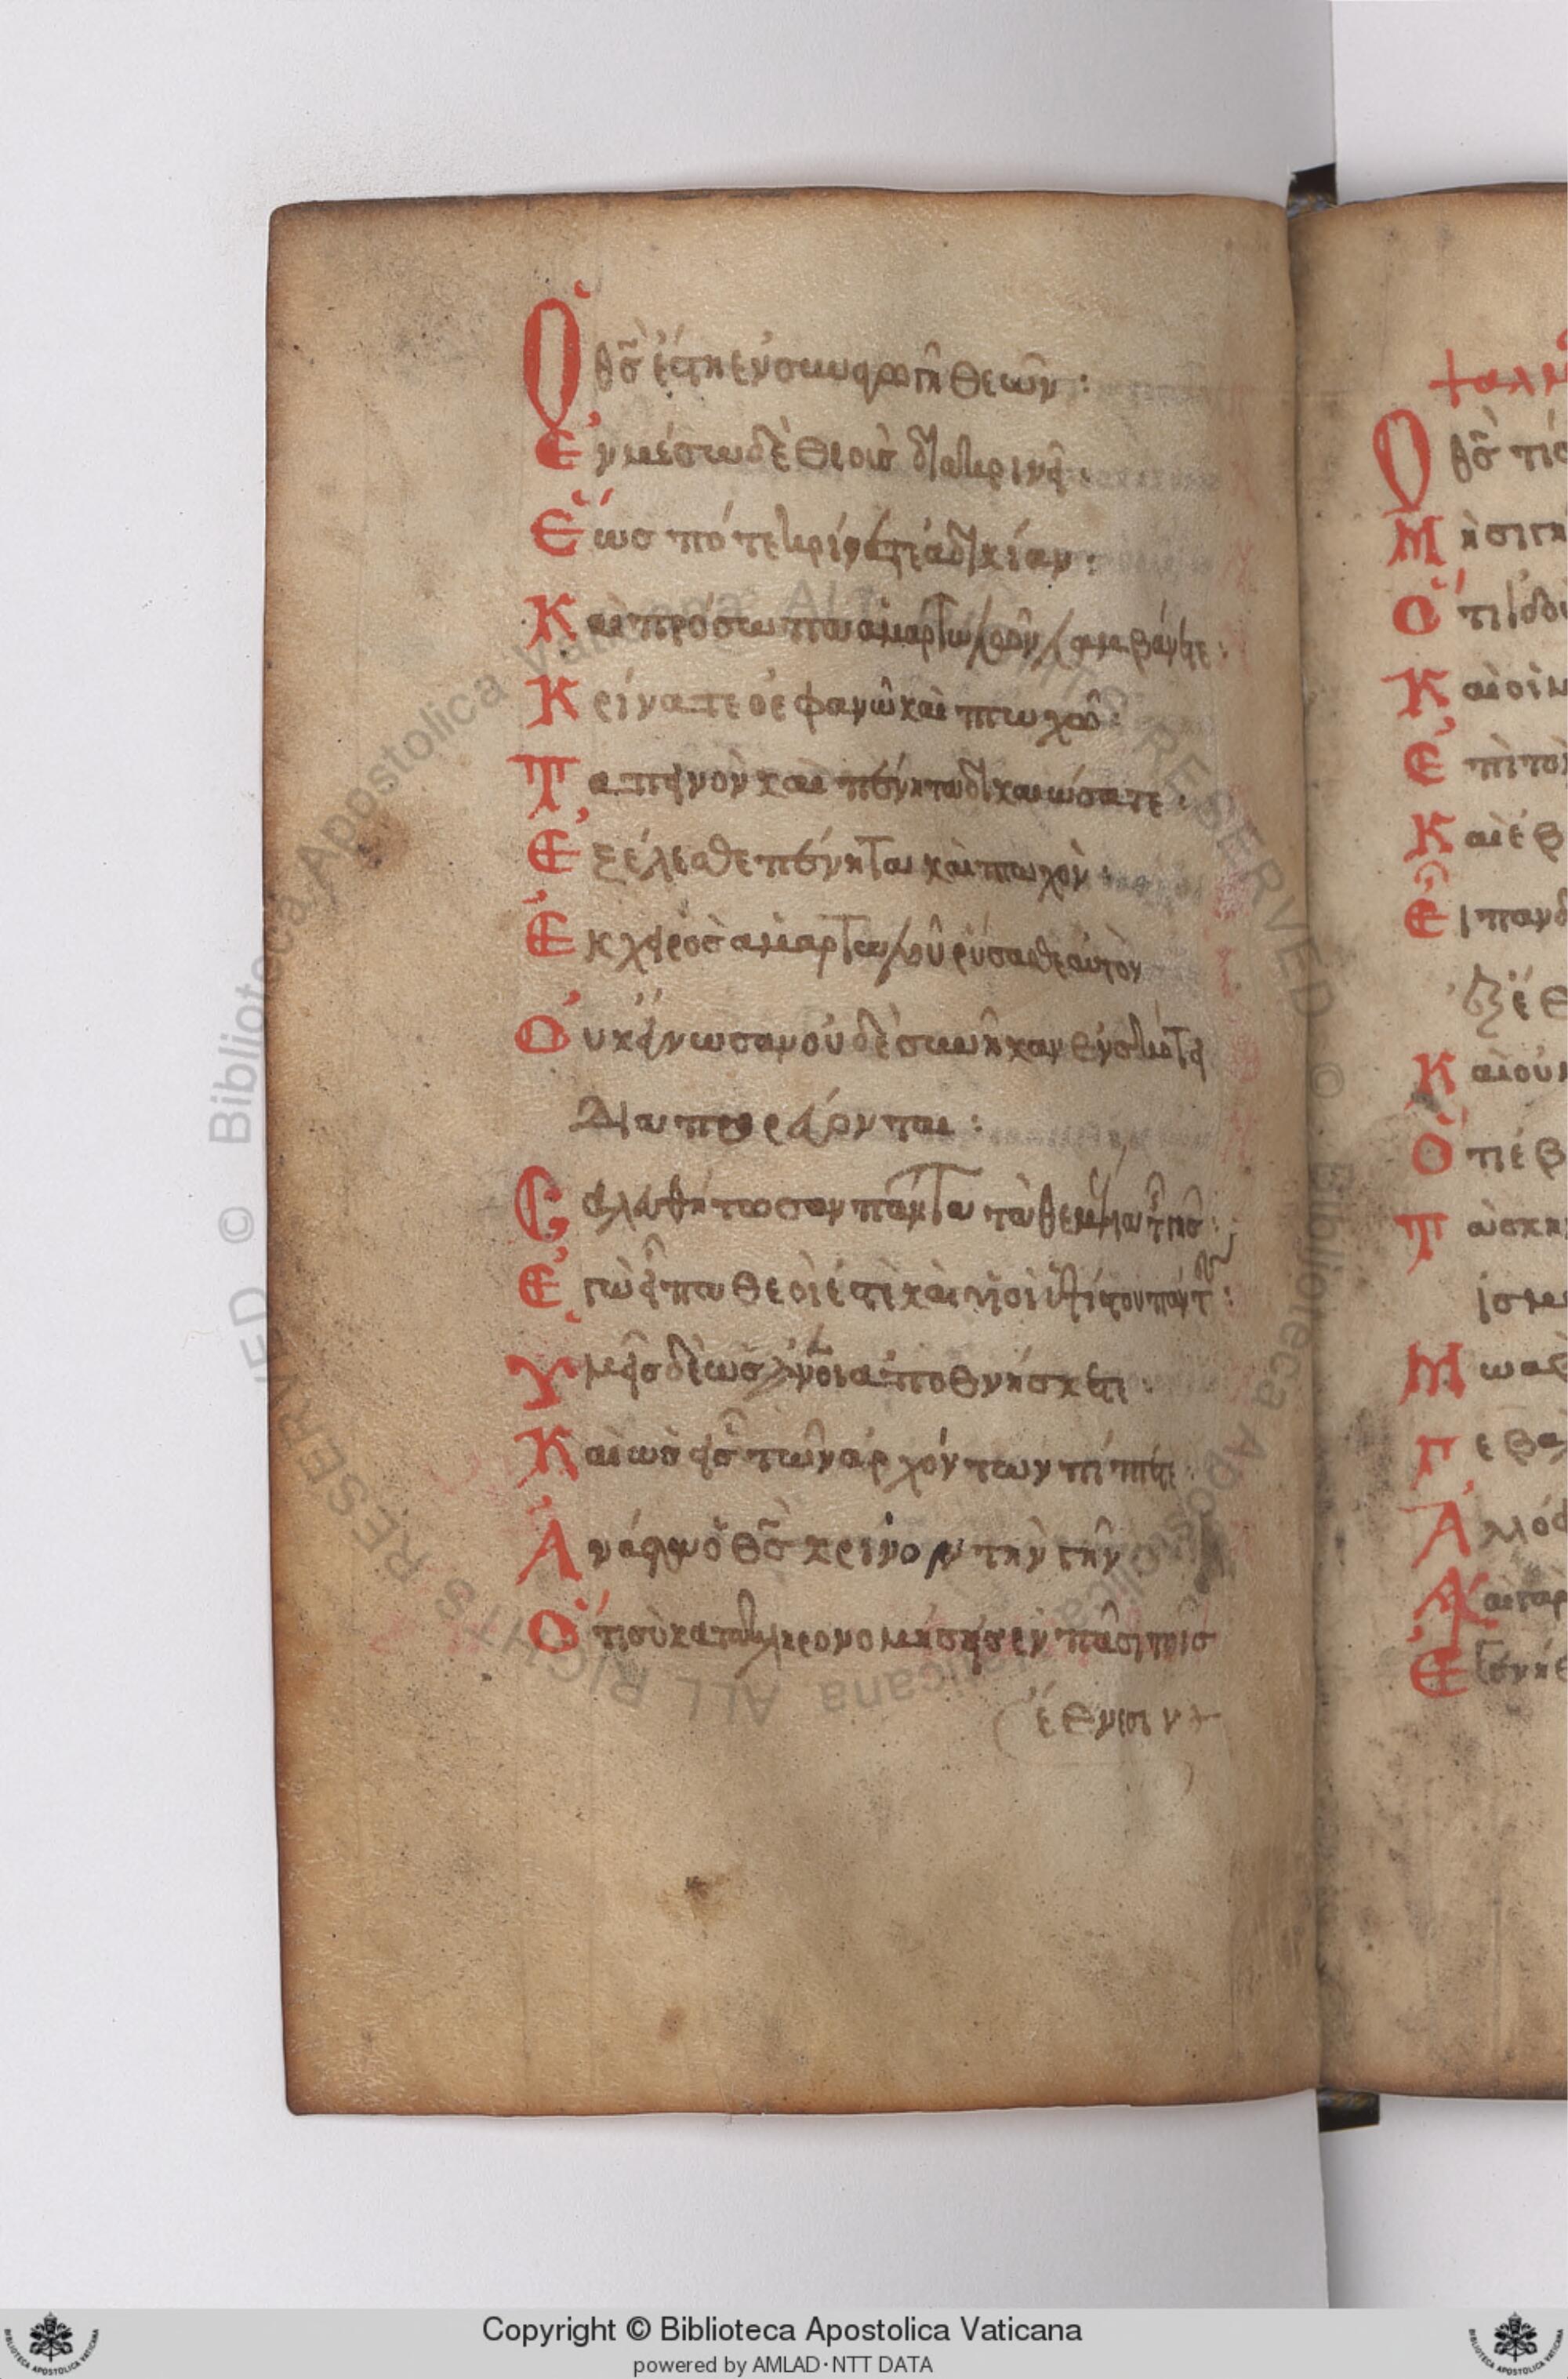 Ὁ θς ἔστη ἐν συναγωγῆ θεῶν :
Ἐν μέσω δὲ θεοὺς διακρινεῖ :
Ἕως πότε κρίνετε ἀδικίαν :
Καὶ πρόσωπα ἁμαρτωλῶν λαμβάνετε :
Κρίνατε ὀρφανῶ καὶ πτωχῶ :
Ταπεινὸν καὶ πένητα δικαιώσατε :
Ἐξέλεσθε πένητα καὶ πτωχὸν :
Ἐκ χειρὸς ἁμαρτωλοῦ ῥύσασθε αὐτὸν
Οὐκ ἔγνωσαν οὐδὲ συνῆκαν ἐν σκότει
Διαπορεύονται :
Σαλευθήτωσαν πάντα τὰ θεμέλια τῆς γῆς :
Ἐγὼ εἶπα θεοί ἐστε καὶ υἱοὶ ὑψίστου πάντες :
Ὑμεῖς δὲ ὡς ἄνοι ἀποθνήσκετε :
Καὶ ὡς εἷς τῶν ἀρχόντων πίπτετε :
Ἀνάστα ὁ θς κρίνον τὴν γῆν
Ὅτι σὺ κατακληρονομήσεις ἐν πᾶσι τοῖς
ἔθνεσιν +
ψαλμ
Ὁ θς τίς
Μὴ σιγή
Ὅτι ἰδοὺ
Καὶ οἱ μ
Ἐπὶ τὸ
Καὶ ἐβ
Εἶπαν δ
Καὶ οὐ μ
Ὅτι ἐβ
Τὰ σκη
ἰσμα
Μωαβ
Γεβα
Ἀλλόφ
Copyright © Biblioteca Apostolica Vaticana
powered by AMLAD·NTT DATA